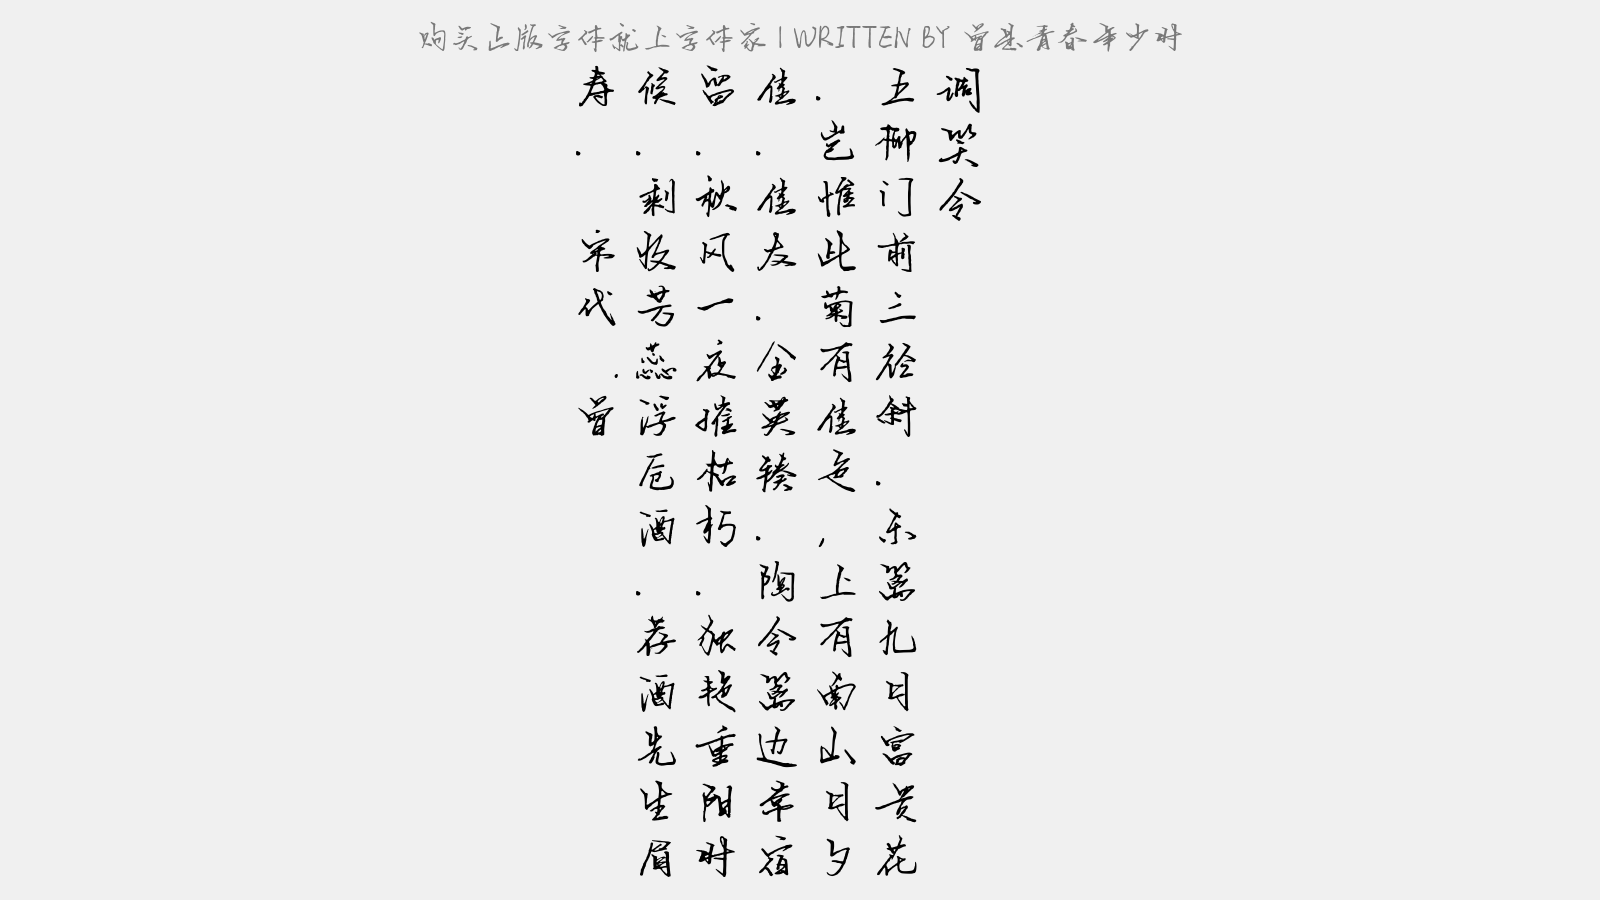 购买正版字体就上字体家 | WRITTEN BY 曾是青春年少时
调笑令
五柳门前三径斜.东篱九日富贵花
.岂惟此菊有佳色,上有南山日夕
佳.佳友.金英辏.陶令篱边常宿
留.秋风一夜摧枯朽.独艳重阳时
候.剩收芳蕊浮卮酒.荐酒先生眉
寿. 宋代.曾